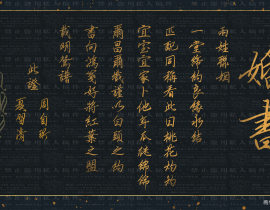 婚書
兩姓聯姻
一堂締約良緣永結
匹配同稱看此日桃花灼灼
宜室宜家卜他年瓜瓞綿綿
爾昌爾熾謹以白頭之約
書向鴻箋好將紅葉之盟
載明鴛譜
此證